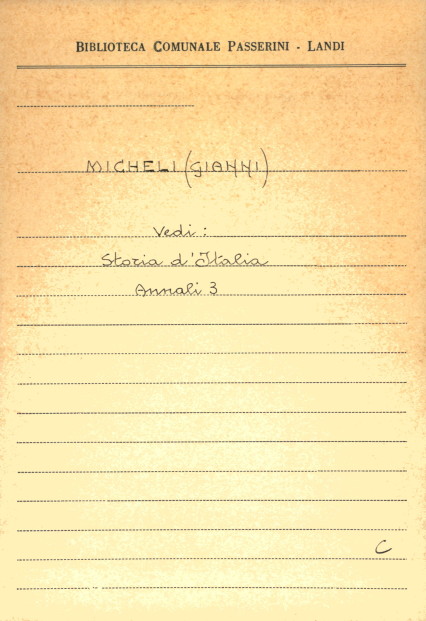 BIBLIOTECA COMUNALE PASSERINI - LANDI
MICHELI (GIANNI)
Vedi :
Storia d'Italia
Annali 3
C